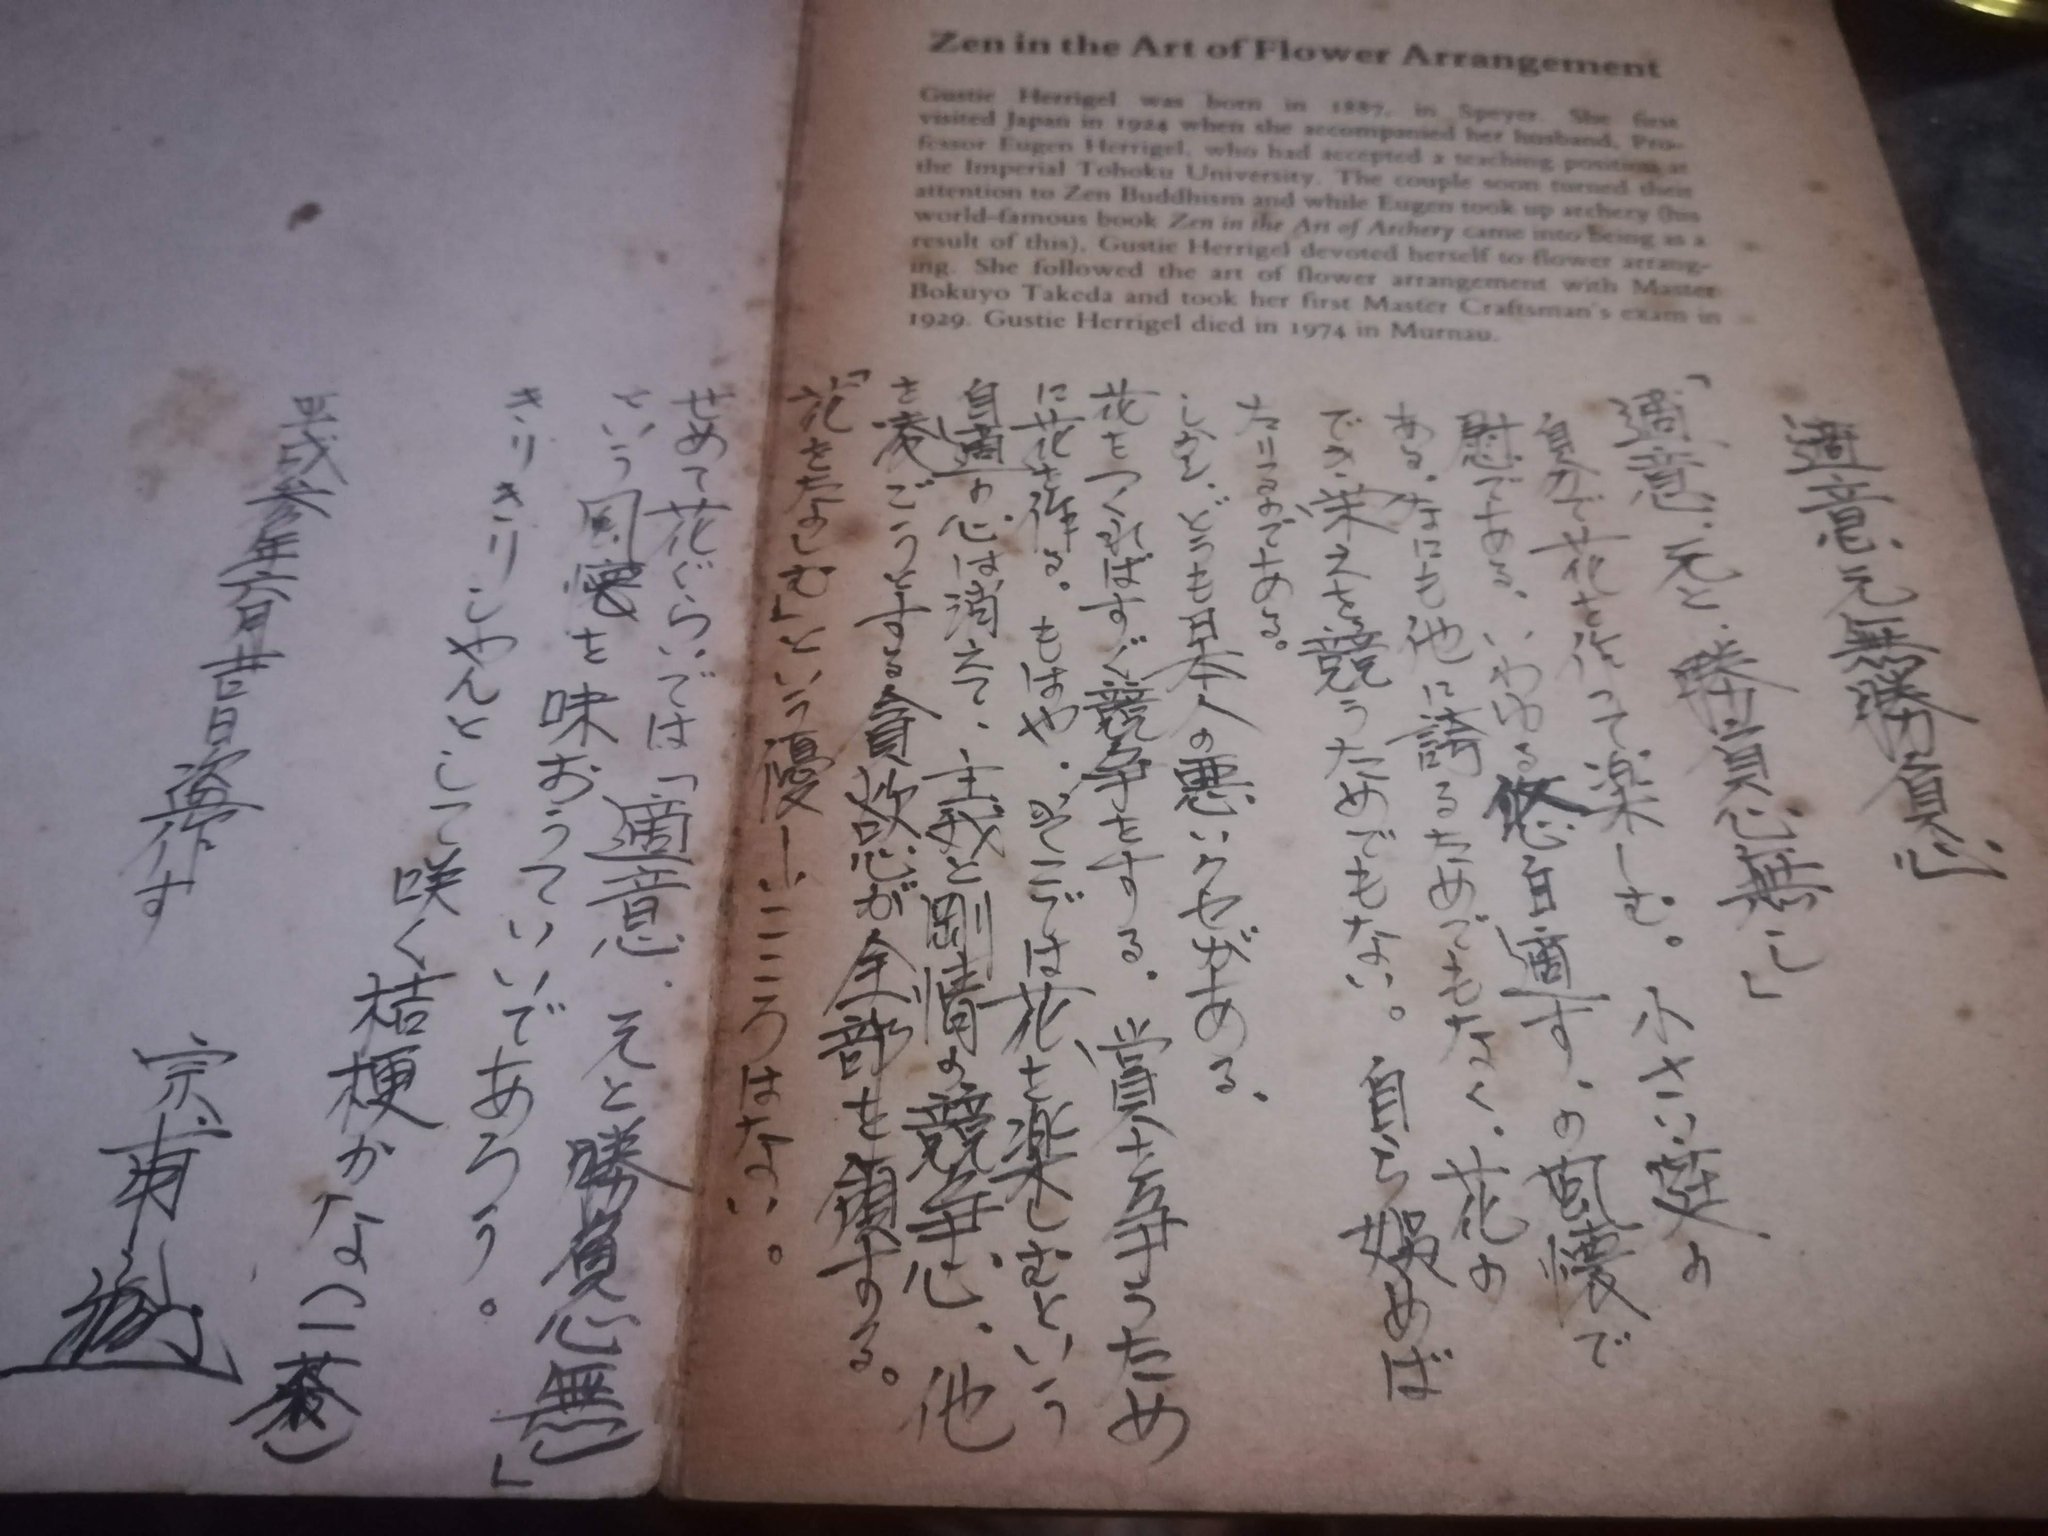 Zen in the Art of Flower Arrangement
Gustie Herrigel was born in 1887, in Speyer. She first
visited Japan in 1924 when she accompanied her husband, Pro-
fessor Eugen Herrigel, who had accepted a teaching position at
the Imperial Tohoku University. The couple soon turned their
attention to Zen Buddhism and while Eugen took up archery (his
world-famous book Zen in the Art of Archery came into being as a
result of this), Gustie Herrigel devoted herself to flower arrang-
ing. She followed the art of flower arrangement with Master
Bokuyo Takeda and took her first Master Craftsman's exam in
1929. Gustie Herrigel died in 1974 in Murnau.
適意元無勝負心
「適意、元と、勝負心無し」
自力で花を作って楽しむ。小さい庭の
慰である、いわゆる悠々自適す、の風懐で
ある。なにも他に誇るためでもなく、花の
できを競うためでもない。自ら娯めば
たりるのである。
しかし、どうも日本人の悪いクセがある。
花をつくればすぐ競争をする。賞を争うため
に花を作る。もはや、そこでは花を楽しむという
自適の心は消えて、主我と剛情の競争心、他
を凌ごうとする勝負心が全部を領する。
「花をたのしむ」という優しいこころはない。
せめて花ぐらいでは「適意、元と勝負心無」
という風懐を味おうていいであろう。
きりきりしやんとして咲く桔梗かな（一茶）
平成参年六月吉日 す 宗